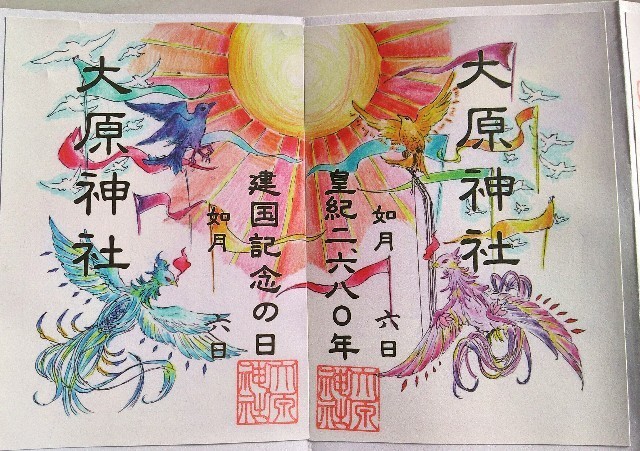 大原神社
如月　六日
皇紀二六八〇年
建国記念の日
如月　六日
大原神社
大原神社
大原神社